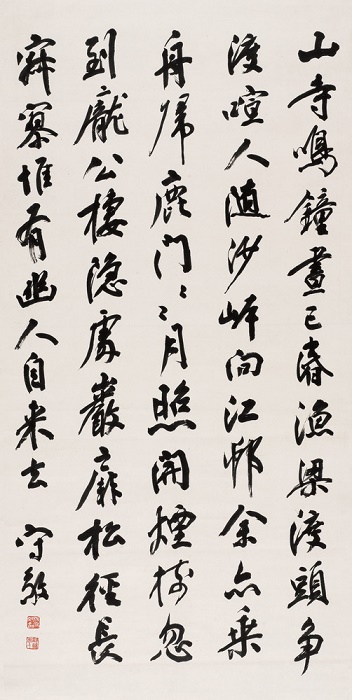 山寺鳴鐘晝已昏漁梁渡頭爭
渡喧人隨沙岸向江邨余亦乘
舟歸鹿門鹿門月照開煙樹忽
到龐公棲隱處巖扉松徑長
寂寥惟有幽人自來去 守敬